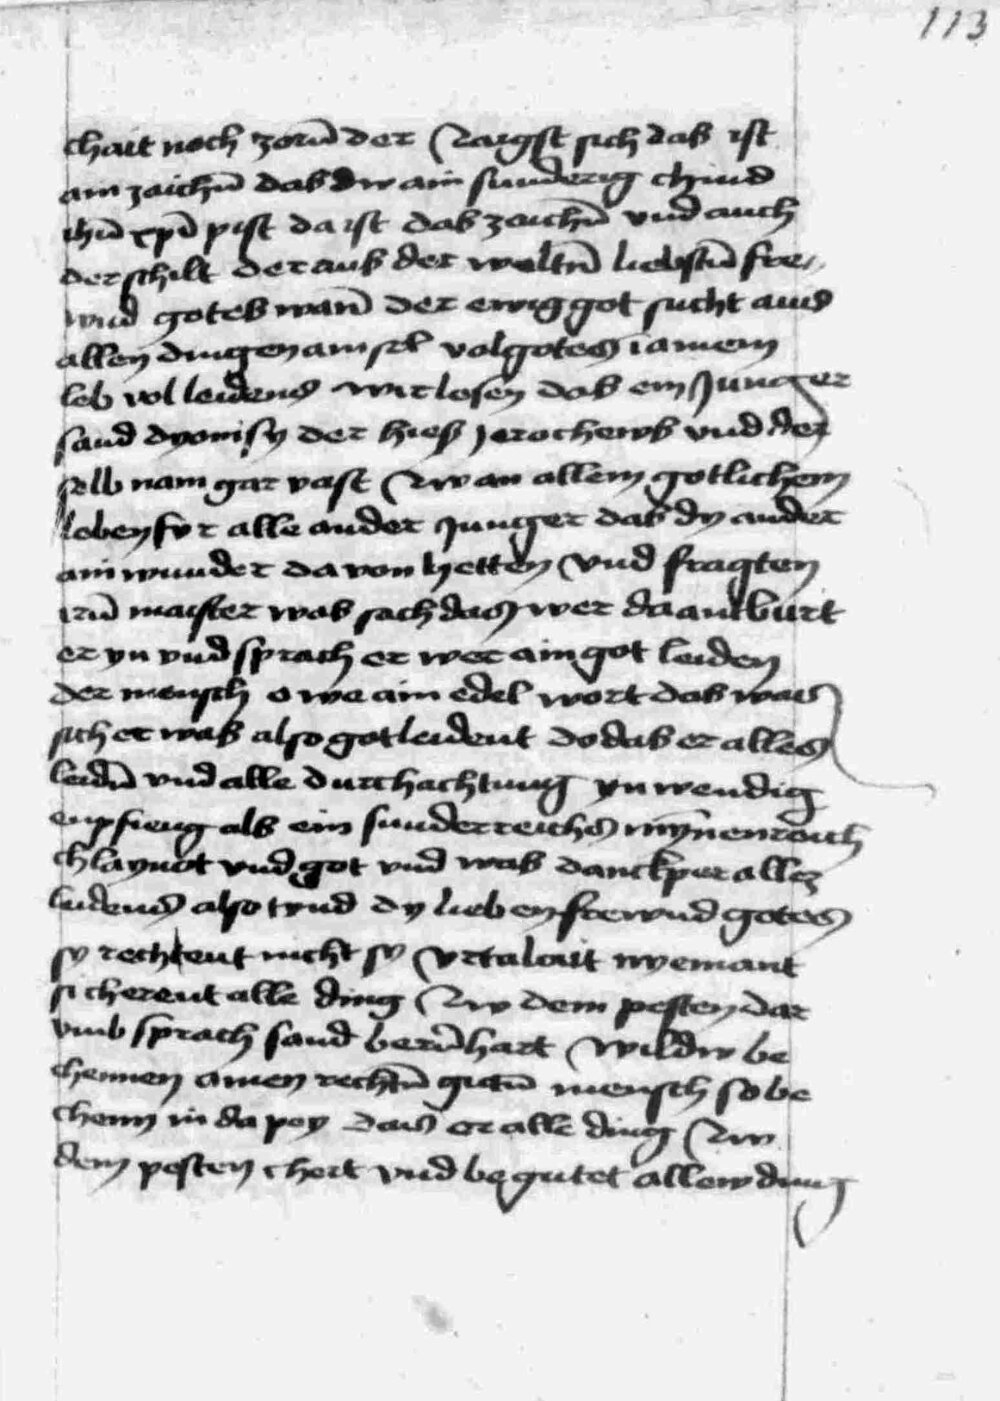 113
chait noch zorn̄ der Naigst sich das ist
ain zaichn̄ das dw ain sunderig chind
ihū xp̄i pist da ist das zaichn̄ vnd auch
der schilt der aus der weltn̄ liebstn̄ fre„
wnd gotes wan̄ der ewig got sucht aus
allen dingen ain sel vol gotes in ainem
leb vol leidens wir lesen das ein Junger
sand dyonisy der hies Jerothews vnd der
selb nam gar vast zw an allem gotlichem
leben fvr alle ander Junger das dy ander
ain wunder da von hetten vnd fragten
irn̄ maister was sach das wer da antburt
er yn vnd sprach er wer ain got leiden
der mensch o we ain edel wort das was
sich er was also gotleident do das er alles
leidn̄ vnd alle durchachtung ynwendig
enpfieng als ein sunderreichs mȳnenreich
chlaynot vnd got vnd was danckper alles
leidens also tvnd dy lieben frewnd gotes
sy rechtent nicht sy vrtalent nyemant
si cherent alle ding zw dem pesten dar
vmb sprach sand bern̄hart wildw be
chennen ainen rechtn̄ gutn̄ mensch so be
chenn in da pey das er alle ding zw
dem pesten chert vnd begutet allew ding